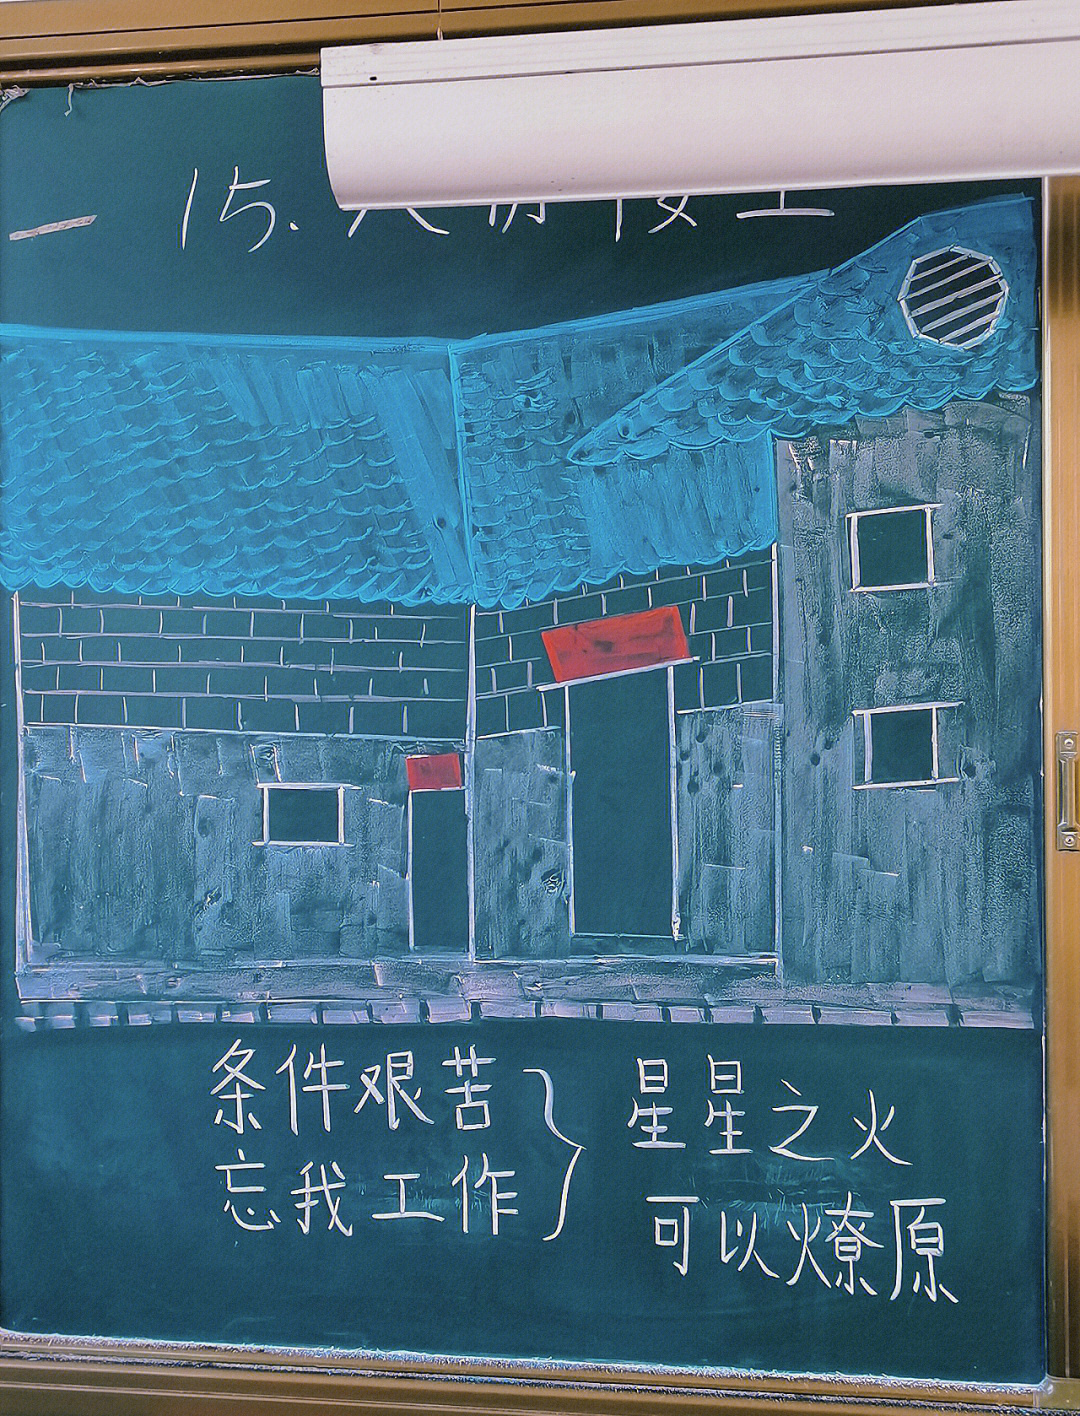 15.
条件艰苦
忘我工作
星星之火
可以燎原